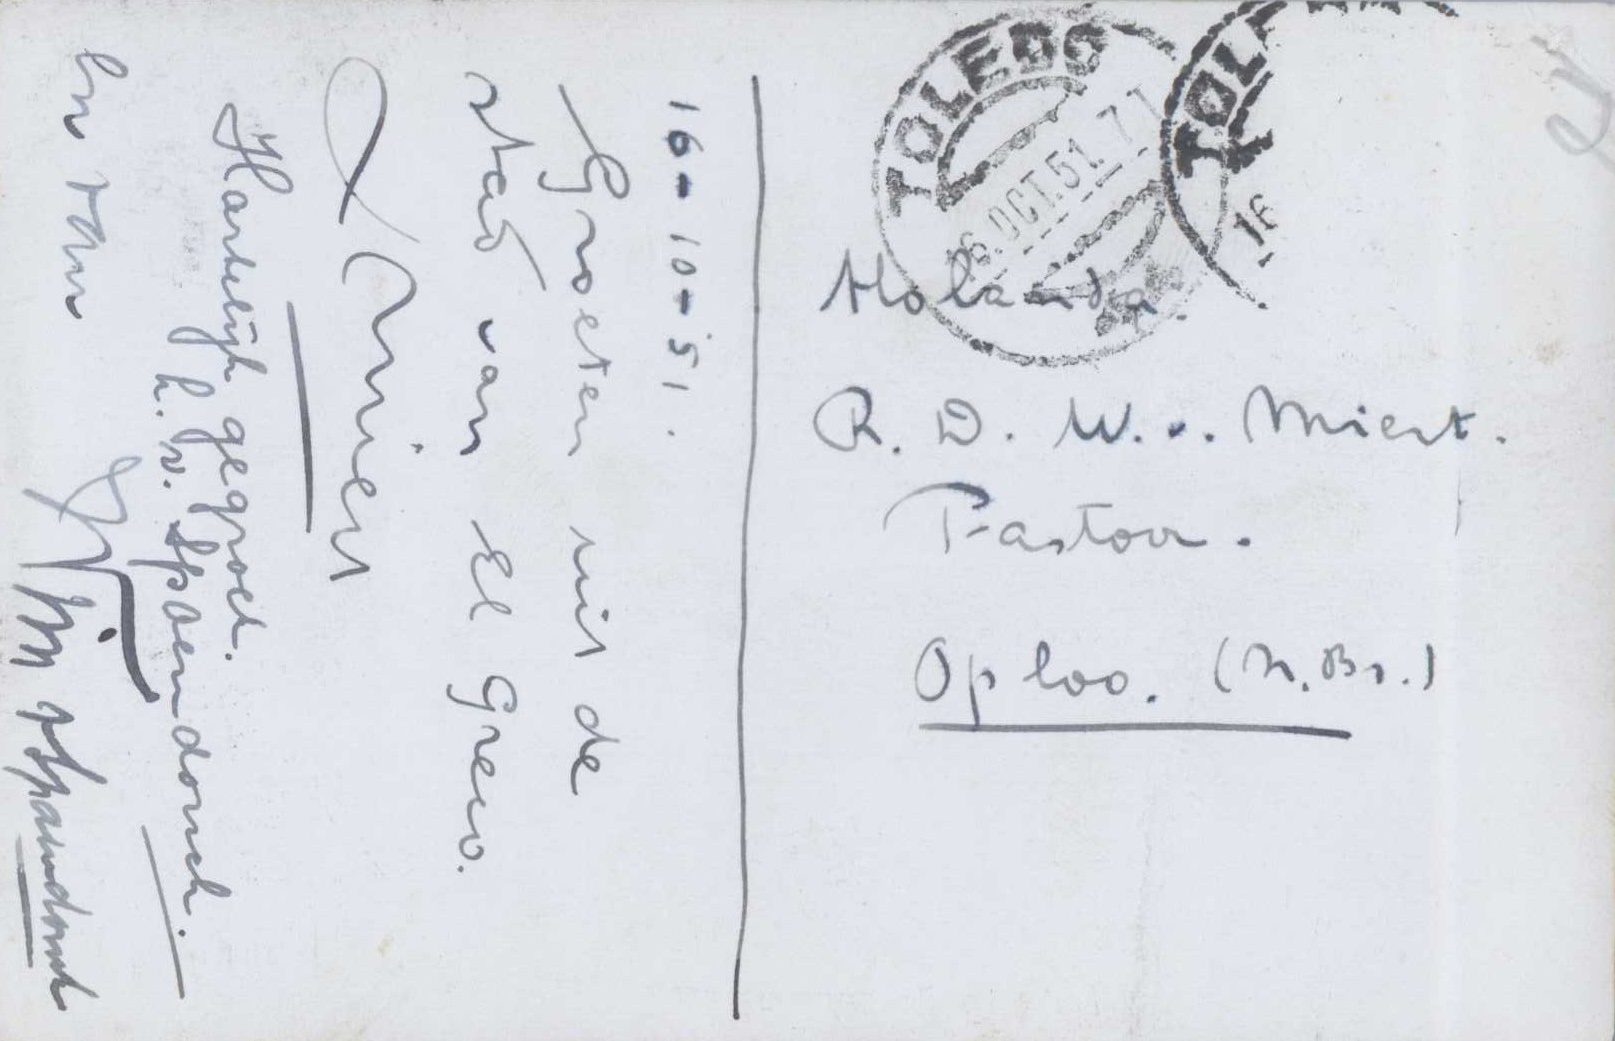 16-10-51.
Groeten uit de
stad van El Greco.
Driek
Hartelijk gegroet.
h. v. Spaendonck.
En van
Spaendonck
TOLEDO
16.OCT.51.7
TOL
16
Holanda.
R. D. W. v. Miert.
Pastoor.
Oploo. (N.Br.)